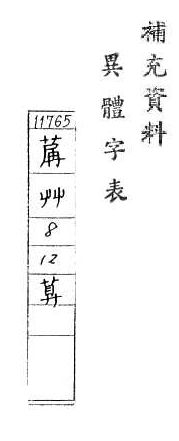 補充資料
異體字表
11765
艸
8
12
萛